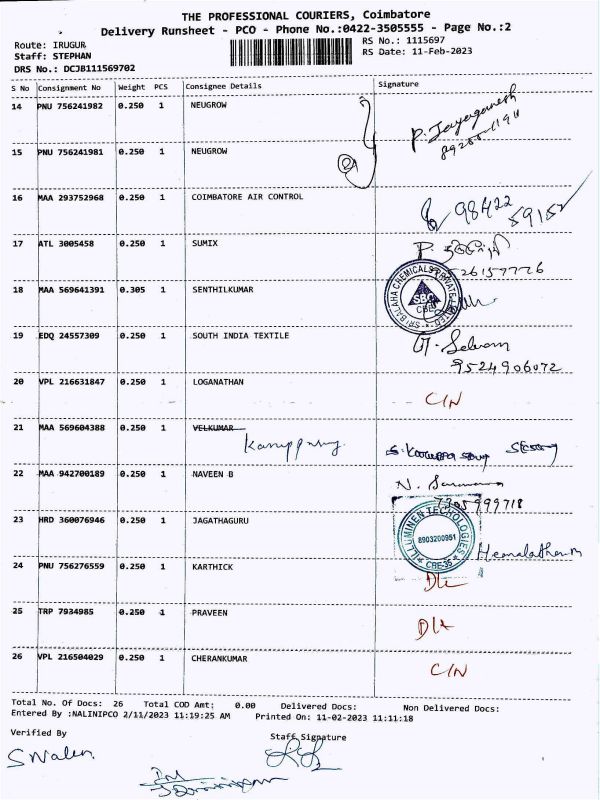 THE PROFESSIONAL COURIERS, Coimbatore
Delivery Runsheet - PCO - Phone No.:0422-3505555 - Page No.:2
Route: IRUGUR
RS No.: 1115697
Staff: STEPHAN
RS Date: 11-Feb-2023
DRS No.: DCJB111569702
S No Consignment No Weight PCS Consignee Details Signature
14 PNU 756241982 0.250 1 NEUGROW
P. Jayaganesh
15 PNU 756241981 0.250 1 NEUGROW
16 MAA 293752968 0.250 1 COIMBATORE AIR CONTROL
98422
59152
17 ATL 3005458 0.250 1 SUMIX
P.
26159776
18 MAA 569641391 0.305 1 SENTHILKUMAR
SRI BALAHA CHEMICALS PRIVATE LIMITED
SBC
CBE
19 EDQ 24557309 0.250 1 SOUTH INDIA TEXTILE
Selvam
9524906072
20 VPL 216631847 0.250 1 LOGANATHAN C/N
21 MAA 569604388 0.250 1 VELKUMAR
22 MAA 942700189 0.250 1 NAVEEN B
7305999718
23 HRD 360076946 0.250 1 JAGATHAGURU
ILLUMINEN TECHOLOGIES
8903200951
CBE-35
Hemalatha.m
24 PNU 756276559 0.250 1 KARTHICK D/L
25 TRP 7934985 0.250 1 PRAVEEN D/L
26 VPL 216504029 0.250 1 CHERANKUMAR C/N
Total No. Of Docs: 26 Total COD Amt: 0.00 Delivered Docs: Non Delivered Docs:
Entered By :NALINIPCO 2/11/2023 11:19:25 AM Printed On: 11-02-2023 11:11:18
Verified By Staff Signature